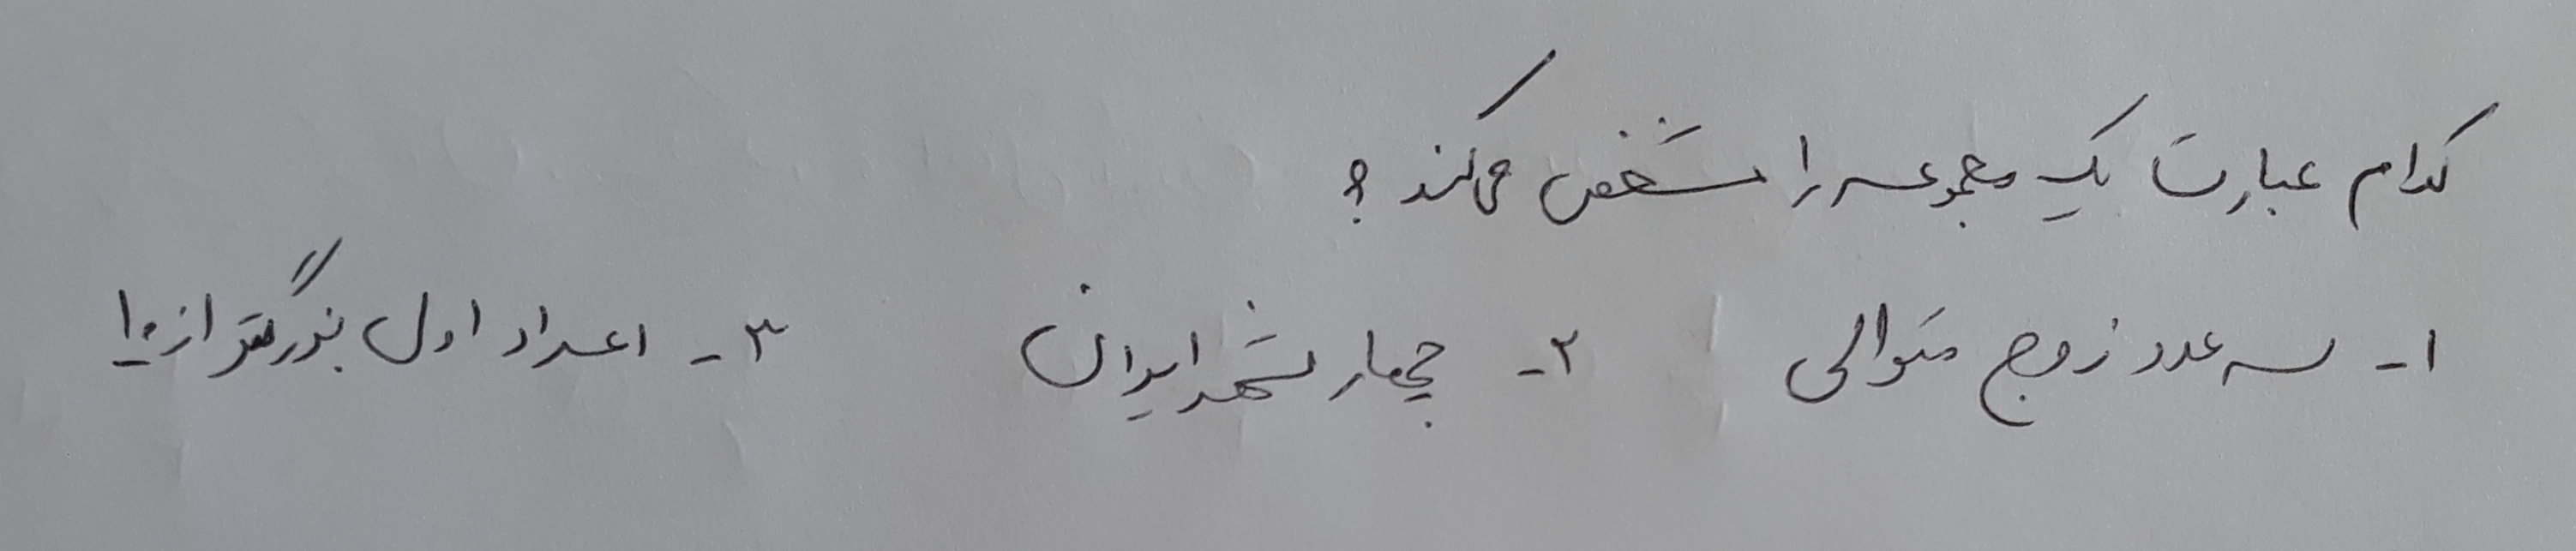 کدام عبارت یک مجموعه را مشخص می‌کند ؟
۱- سه عدد زوج متوالی ۲- چهار شهر ایران ۳- اعداد اول بزرگتر از ۱۰